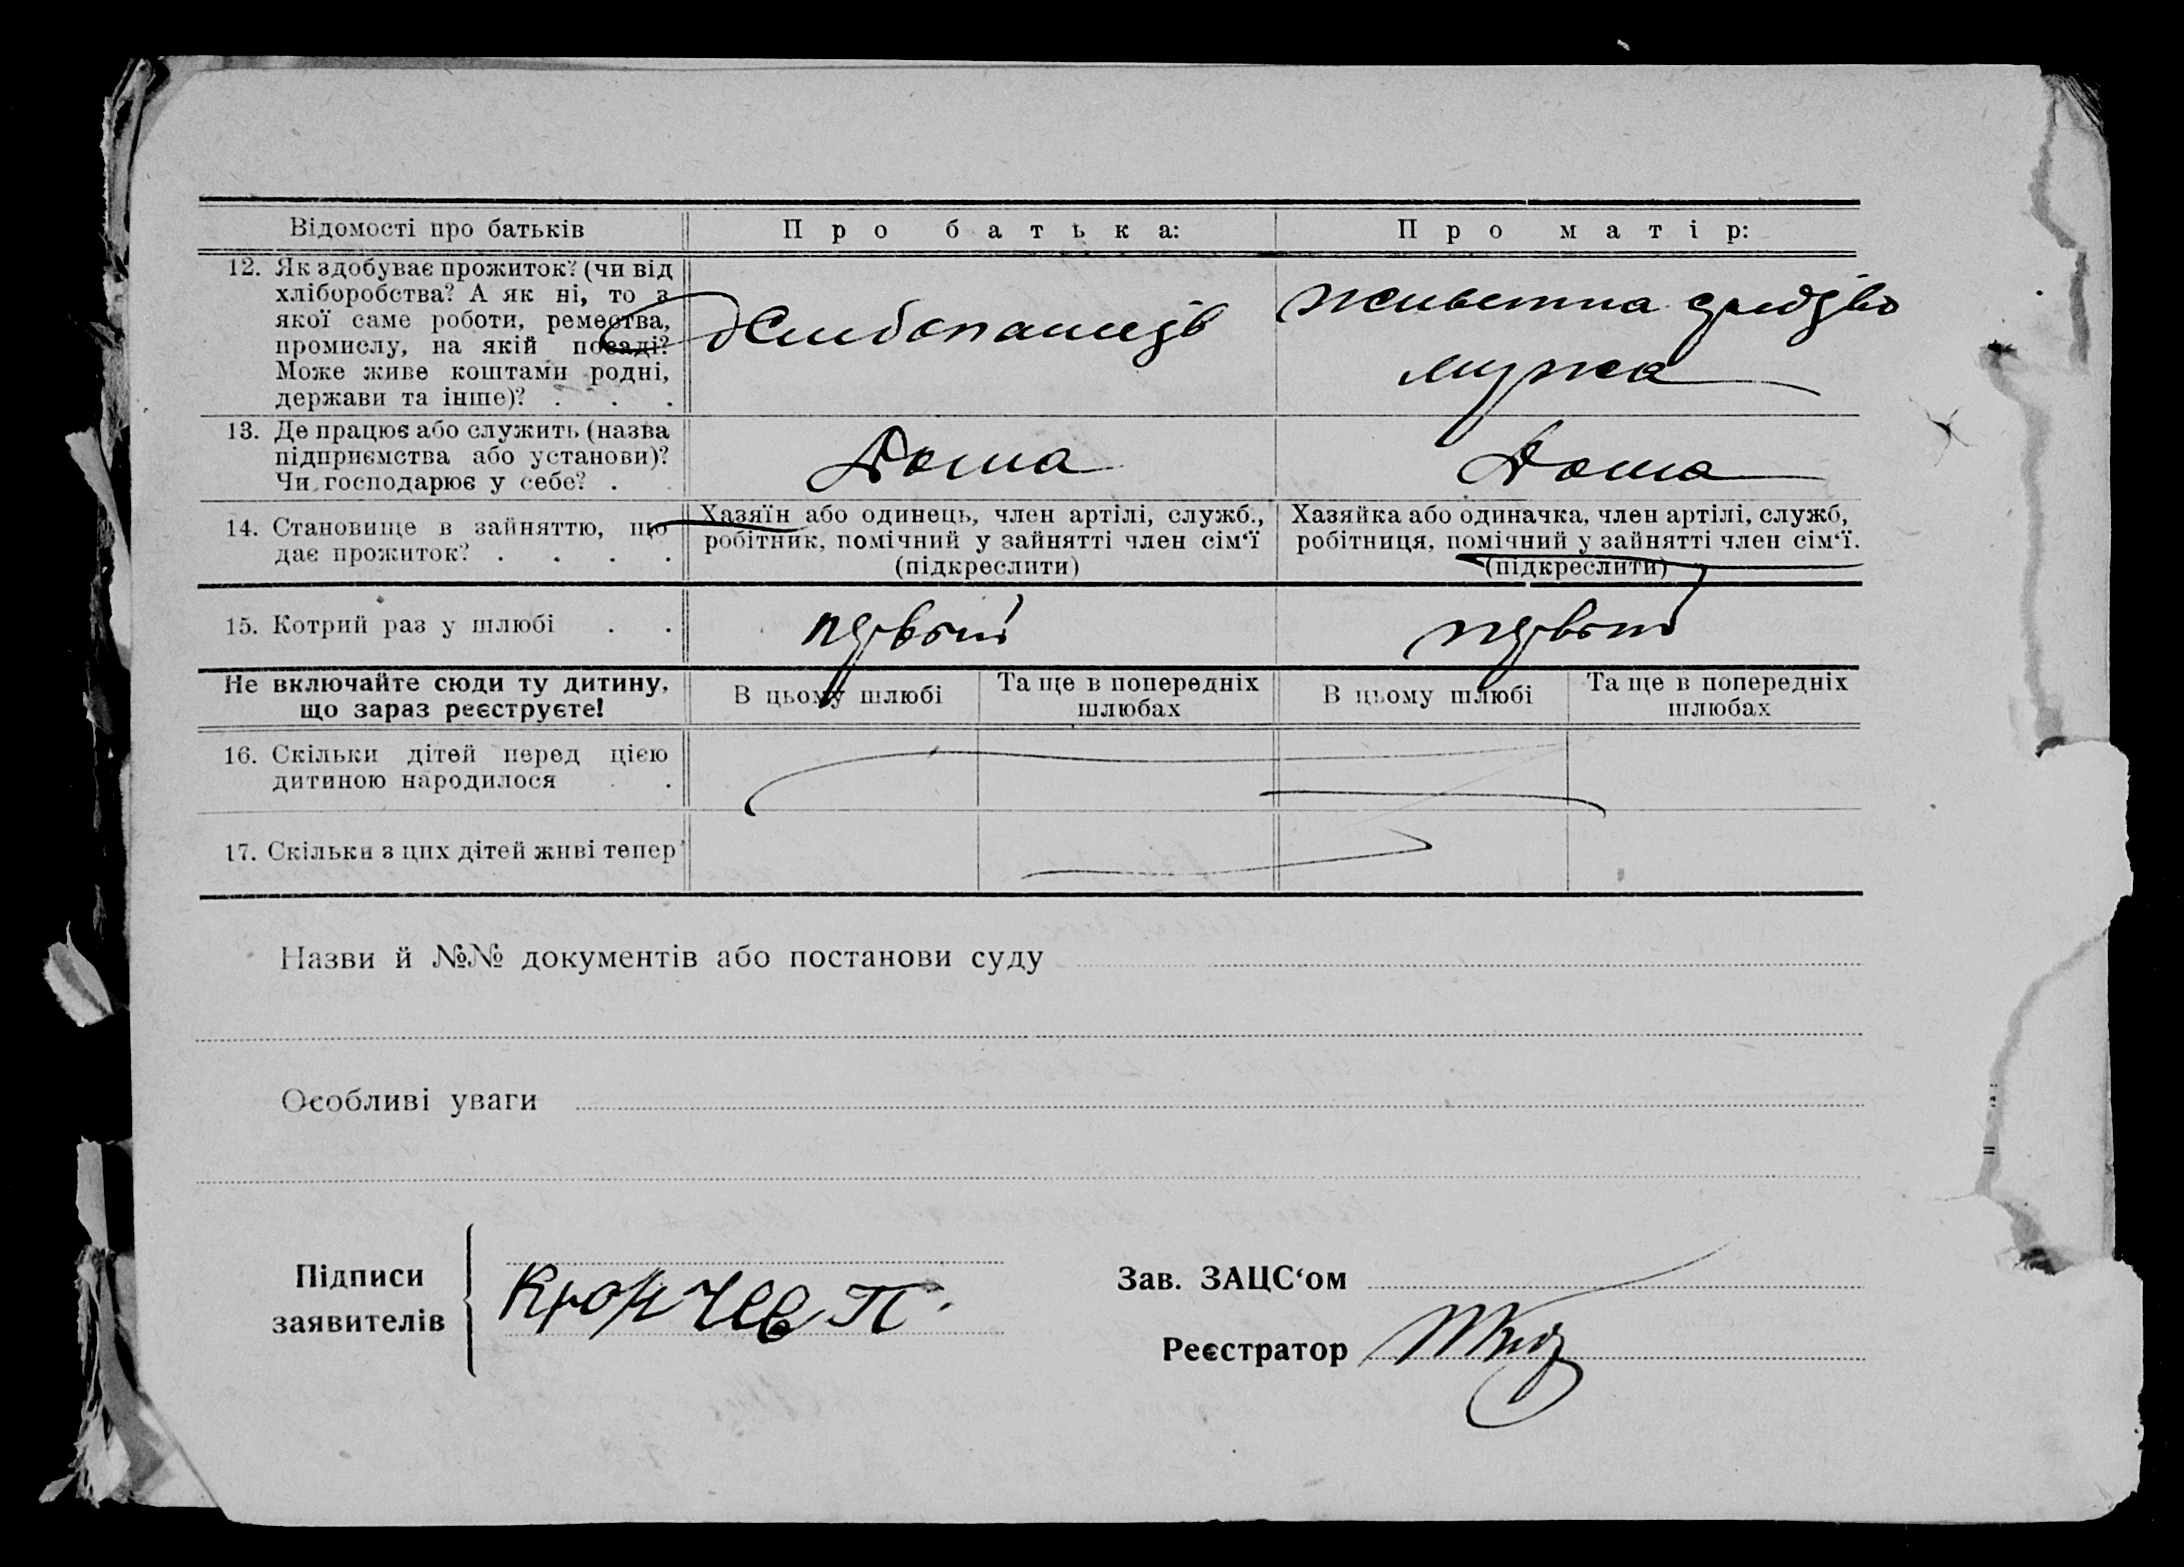 Відомості про батьків
Про батька:
Про матір:
12. Як здобуває прожиток? (чи від
хліборобства? А як ні, то з
якої саме роботи, ремества,
промислу, на якій посаді?
Може живе коштами родні,
держави та інше)? . . .
Хлибопашець
живет на
мужа
13. Де працює або служить (назва
підприємства або установи)?
Чи господарює у себе? .
Дома
Дома
14. Становище в зайняттю, що
дає прожиток? . . . .
Хазяїн або одинець, член артілі, служб.,
робітник, помічний у зайнятті член сім‘ї
(підкреслити)
Хазяйка або одиначка, член артілі, служб,
робітниця, помічний у зайнятті член сім‘ї.
(підкреслити)
15. Котрий раз у шлюбі . .
первый
первый
Не включайте сюди ту дитину,
що зараз реєструєте!
В цьому шлюбі
Та ще в попередніх
шлюбах
В цьому шлюбі
Та ще в попередніх
шлюбах
16. Скільки дітей перед цією
дитиною народилося . .
17. Скільки з цих дітей живі тепер
Назви й №№ документів або постанови суду
Особливі уваги
Підписи
заявителів
Крончев П.
Зав. ЗАЦС‘ом
Реєстратор